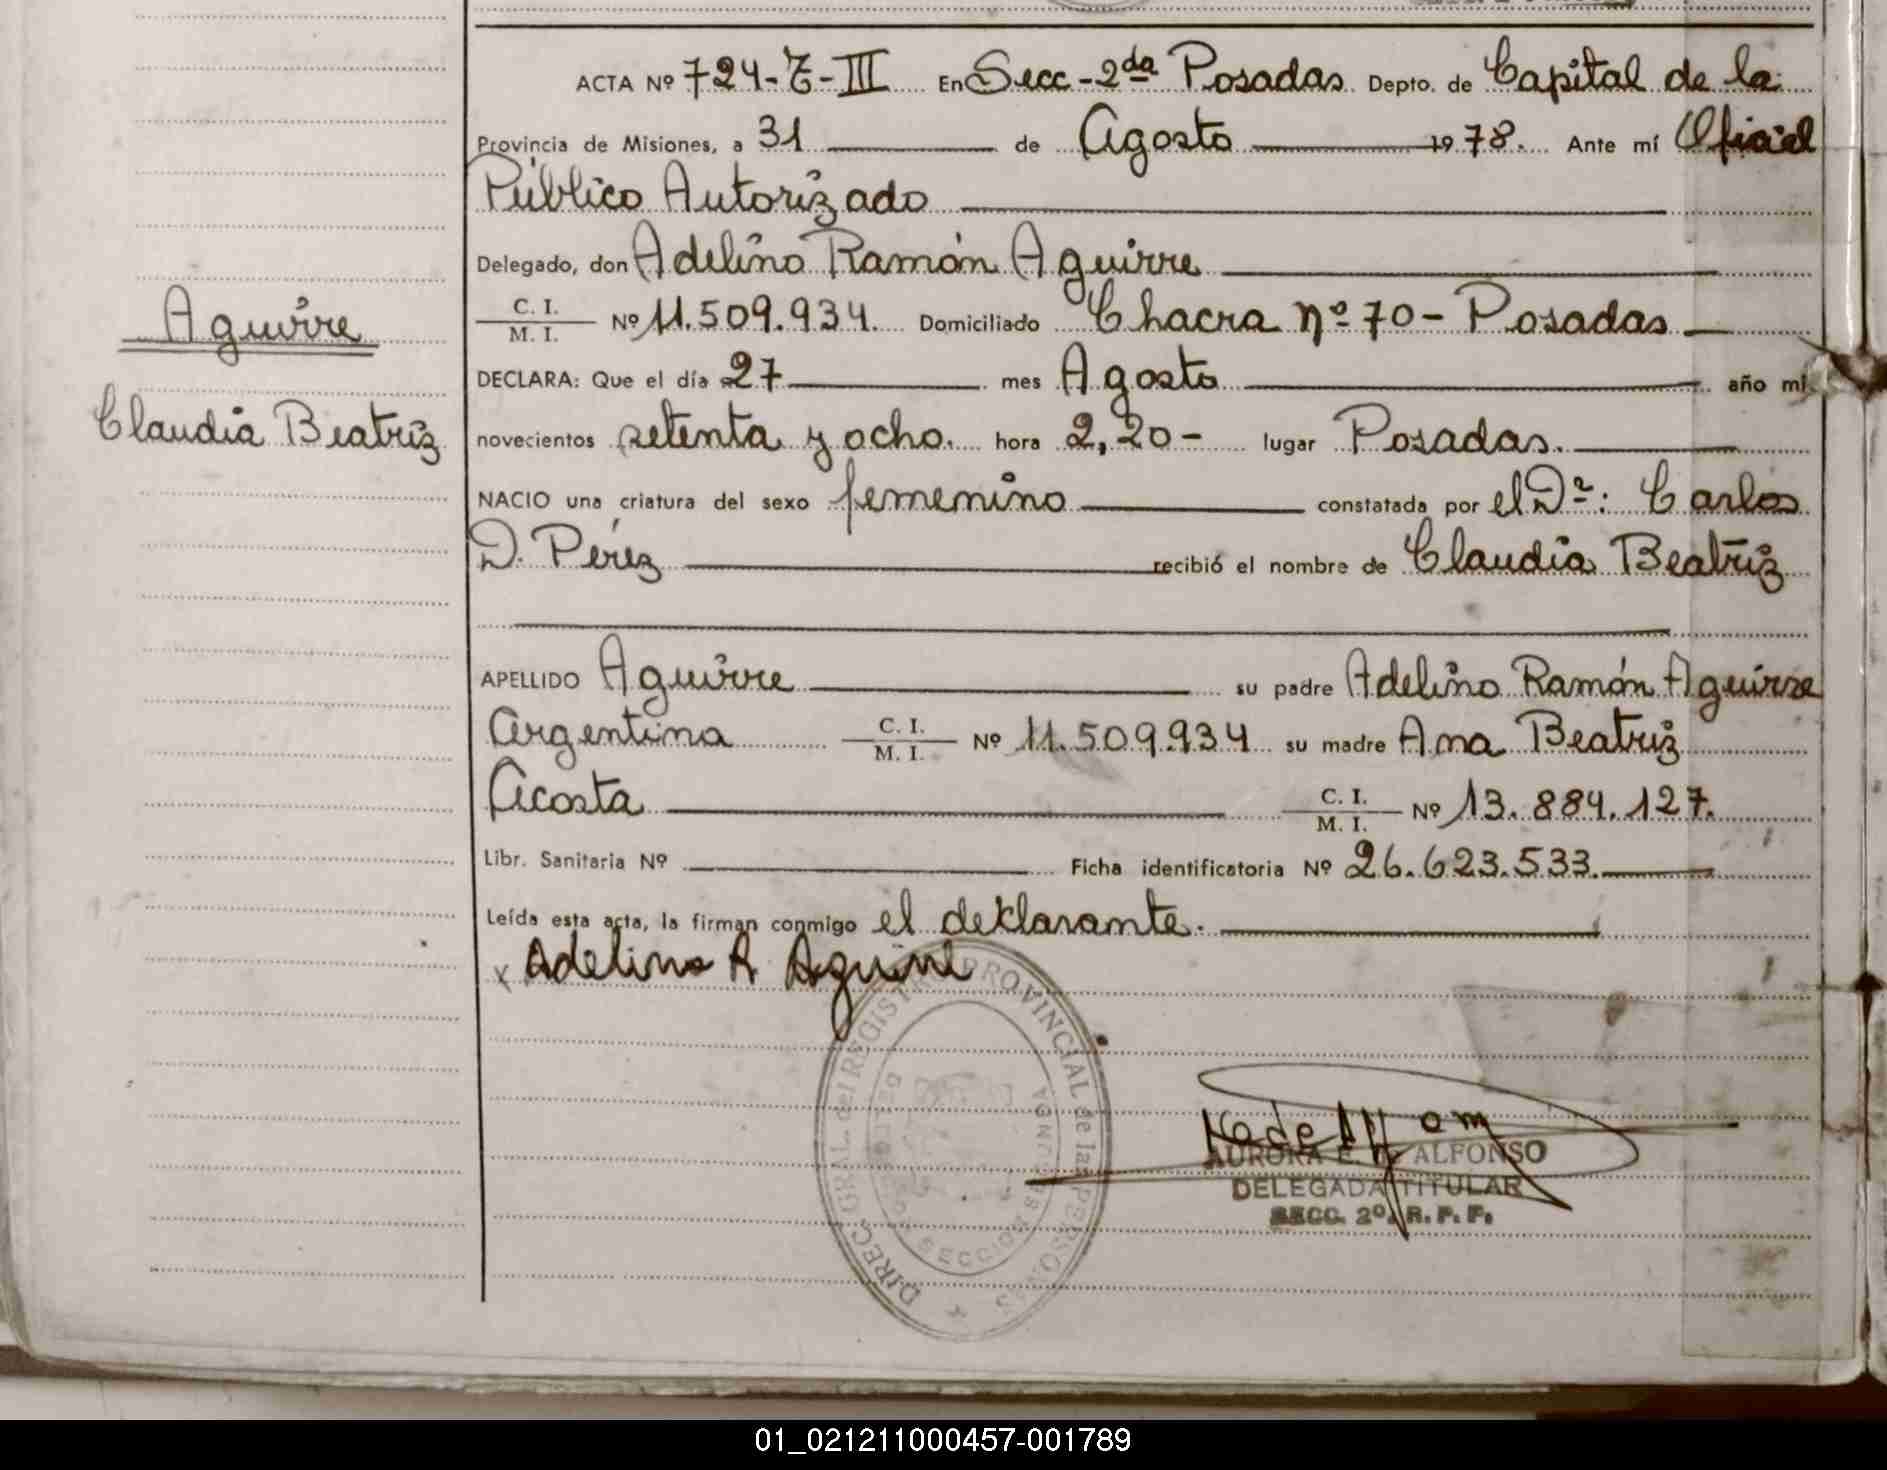 ACTA Nº 724-T-III En Secc-2da Posadas Depto. de Capital de la
Provincia de Misiones, a 31 de Agosto 1978. Ante mí Oficial
Público Autorizado
Delegado, don Adelino Ramón Aguirre
C. I.
M. I. Nº 11.509.934. Domiciliado Chacra nº 70 - Posadas
Aguirre
DECLARA: Que el día 27 mes Agosto año mil
Claudia Beatriz
novecientos setenta y ocho. hora 2,20- lugar Posadas.
NACIO una criatura del sexo femenino constatada por el Dr: Carlos
D. Pérez recibió el nombre de Claudia Beatriz
APELLIDO Aguirre su padre Adelino Ramón Aguirre
Argentina C. I. M. I. Nº 11.509.934 su madre Ana Beatriz
Acosta C. I. M. I. Nº 13.884.127.
Libr. Sanitaria Nº Ficha identificatoria Nº 26.623.533.
Leída esta acta, la firman conmigo el deklarante.
x Adelino R Aguirre
DIREC. GRAL. del REGISTRO PROVINCIAL de las PERSONAS
SECCION
AURORA E. ALFONSO
DELEGADA TITULAR
SECC. 2º. R. P. P.
01_021211000457-001789